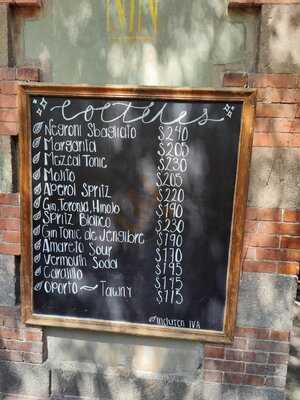 Cocteles
Negroni Sbagliato $240
Margarita $205
Mezcal Tonic $230
Mojito $205
Aperol Spritz $220
Gin, Toronja, Hinojo $190
Spritz Bianco $230
Gin Tonic de Jengibre $190
Amareto Sour
Vermouth Soda $195
Carajillo
Oporto ~ Tawny
incluyen IVA